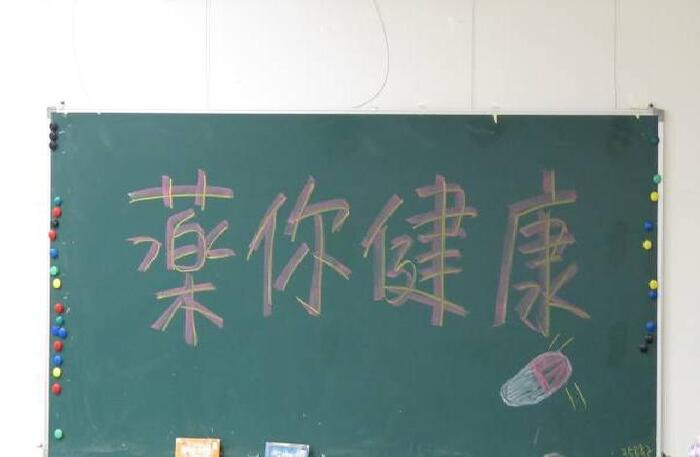 藥你健康